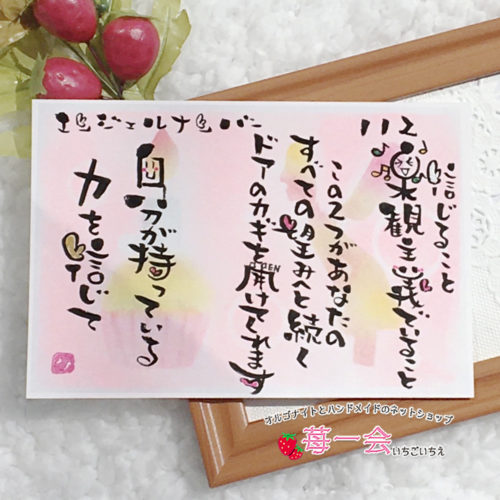 エンジェルナンバー
112
信じること
楽観主義でいること
この2つがあなたの
すべての望みへと続く
ドアのカギを開けてくれます
OPEN
自分が持っている
力を信じて
オルゴナイトとハンドメイドのネットショップ
苺一会いちごいちえ